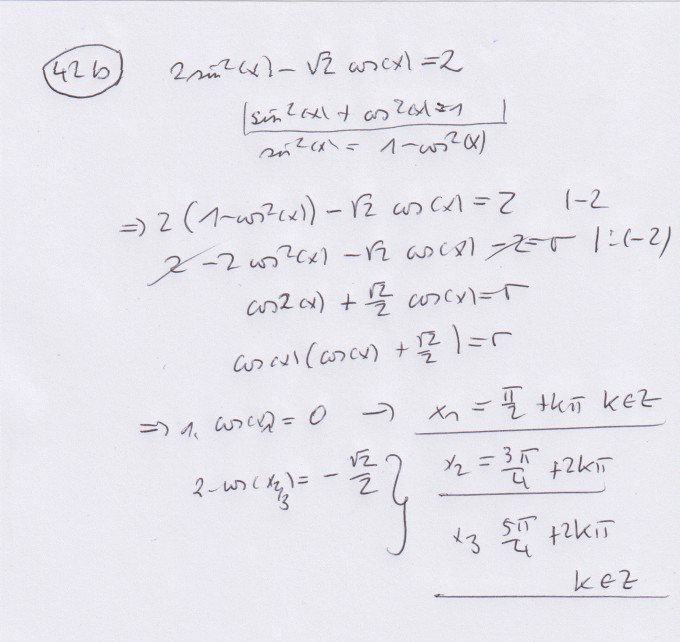 42b
2sin²(x) - √2 cos(x) = 2
sin²(x) + cos²(x) = 1
sin²(x) = 1 - cos²(x)
=> 2(1-cos²(x)) - √2 cos(x) = 2 |-2
2 - 2cos²(x) - √2 cos(x) - 2 = 0 |:(-2)
cos2(x) + √2/2 cos(x) = 0
cos(x)(cos(x) + √2/2) = 0
=> 1. cos(x) = 0 → x₁ = π/2 + kπ k∈Z
2. cos(x2/3) = -√2/2 } x₂ = 3π/4 + 2kπ
x₃ 5π/4 + 2kπ
k∈Z